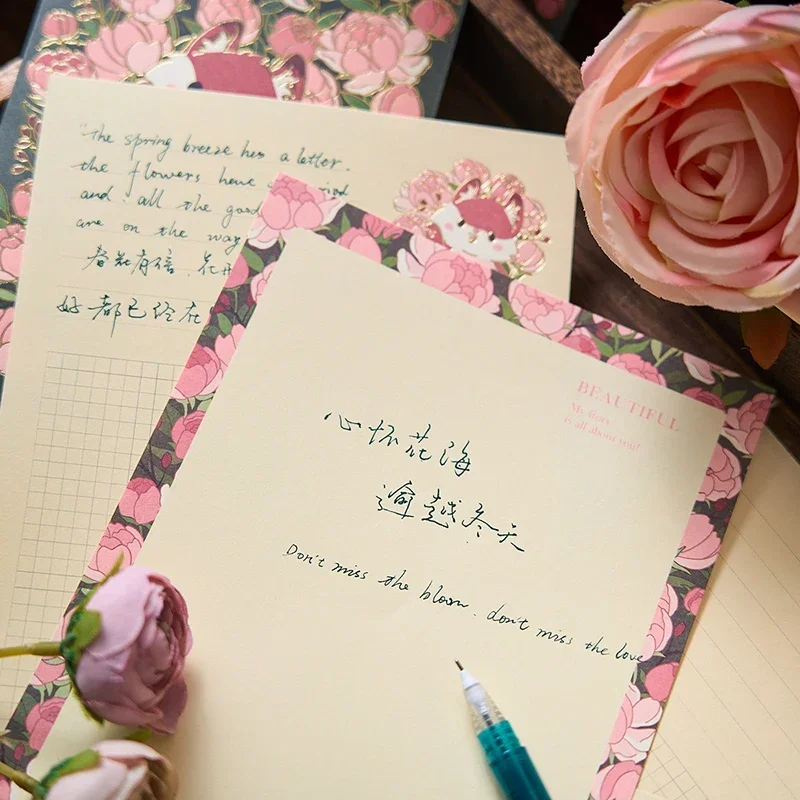 "the spring breeze has a letter.
the flowers have
and all the good
are on the way
春秋有信，花开
好都已经在
BEAUTIFUL
My story
is all about you!
心怀花海
逾越冬天
Don't miss the bloom. don't miss the love